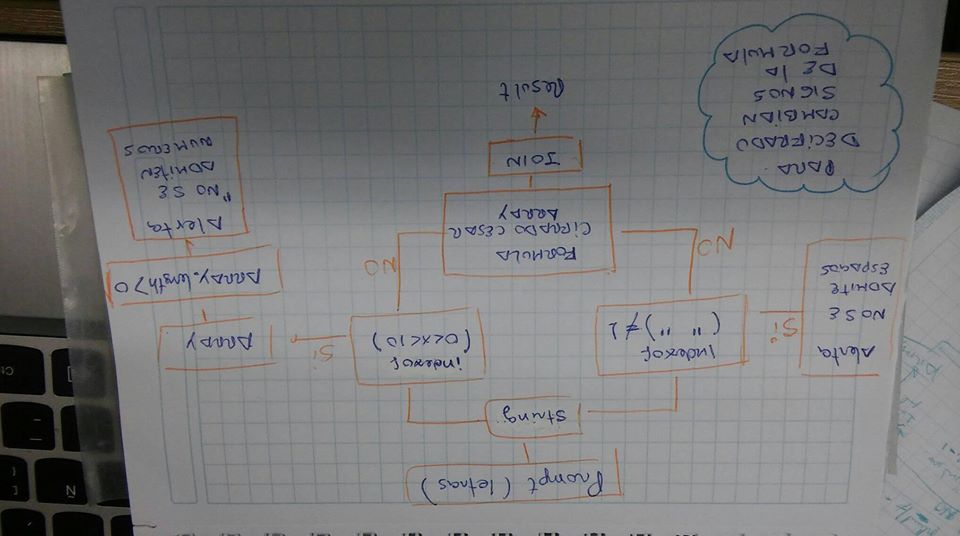 Prompt (letras)
string
Alerta
NO SE
ADMITE
ESPACIOS
Si
Indexof
(" ") ≠ 1
indexof
(0<x<10)
Si
ARRAY
ARRAY.length>0
Alerta
"NO SE
ADMITEN
NUMEROS
NO
FORMULA
CIFRADO CESAR
ARRAY
NO
JOIN
Result
PARA
DECIFRADO
CAMBIAN
SIGNOS
DE la
FORMULA
Ñ
Ct